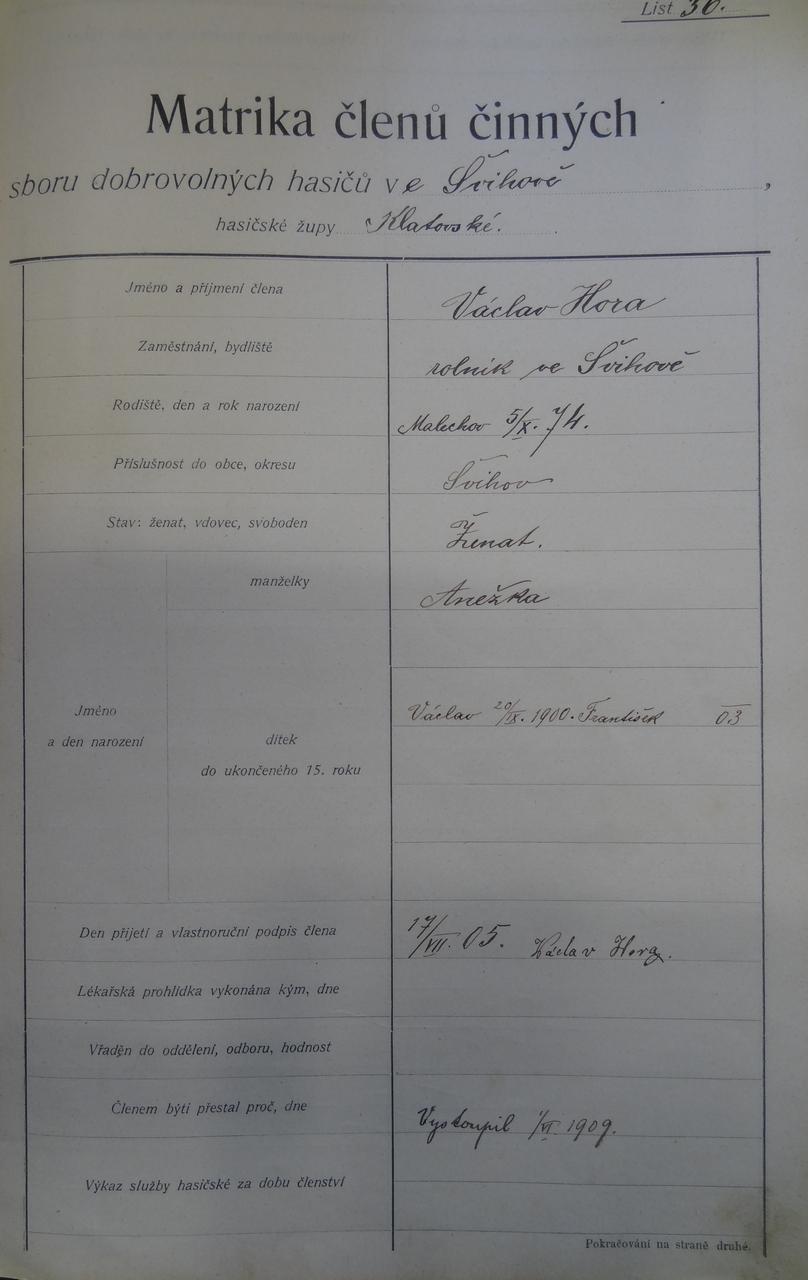 List 36.
Matrika členů činných
sboru dobrovolných hasičů ve Švihově,
hasičské župy Klatovské.
Jméno a příjmení člena Václav Hora
Zaměstnání, bydliště rolník ve Švihově
Rodiště, den a rok narození Malechov 5/X. 74.
Příslušnost do obce, okresu Švihov
Stav: ženat, vdovec, svoboden Ženat.
manželky Anežka
Jméno
a den narození
Václav 20/IX. 1900. František 03
dítek
do ukončeného 15. roku
Den přijetí a vlastnoruční podpis člena 17/VII. 05. Václav Hora.
Lékařská prohlídka vykonána kým, dne
Vřaděn do oddělení, odboru, hodnost
Členem býti přestal proč, dne Vystoupil 1/VI 1909.
Výkaz služby hasičské za dobu členství
Pokračování na straně druhé.